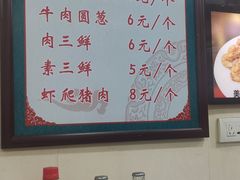 牛肉圆葱 6元/个
肉三鲜 6元/个
素三鲜 5元/个
虾爬猪肉 8元/个